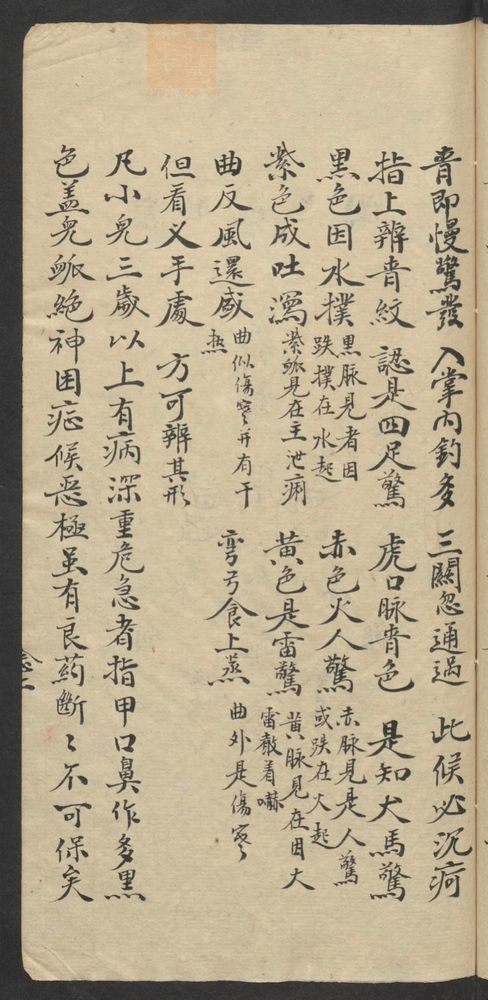 青即慢驚發 入掌内釣多 三關忽通過 此候必沉疴
指上辨青紋 認是四足驚 虎口脉青色 是知犬馬驚
黑色因水撲 黑脉見者因跌撲在水起 赤色火人驚 赤脉見是人驚或跌在火起
紫色成吐瀉 紫脉見在主泄痢 黄色是雷驚 黄脉見在因大雷敲着嚇
曲反風還盛 曲似傷寒并有干热 弯弓食上蒸 曲外是傷寒
但看义手處 方可辨其形
凡小児三歲以上有病深重危急者指甲口鼻作多黑
色盖児脉絶神困症候惡極虽有良药斷〻不可保矣